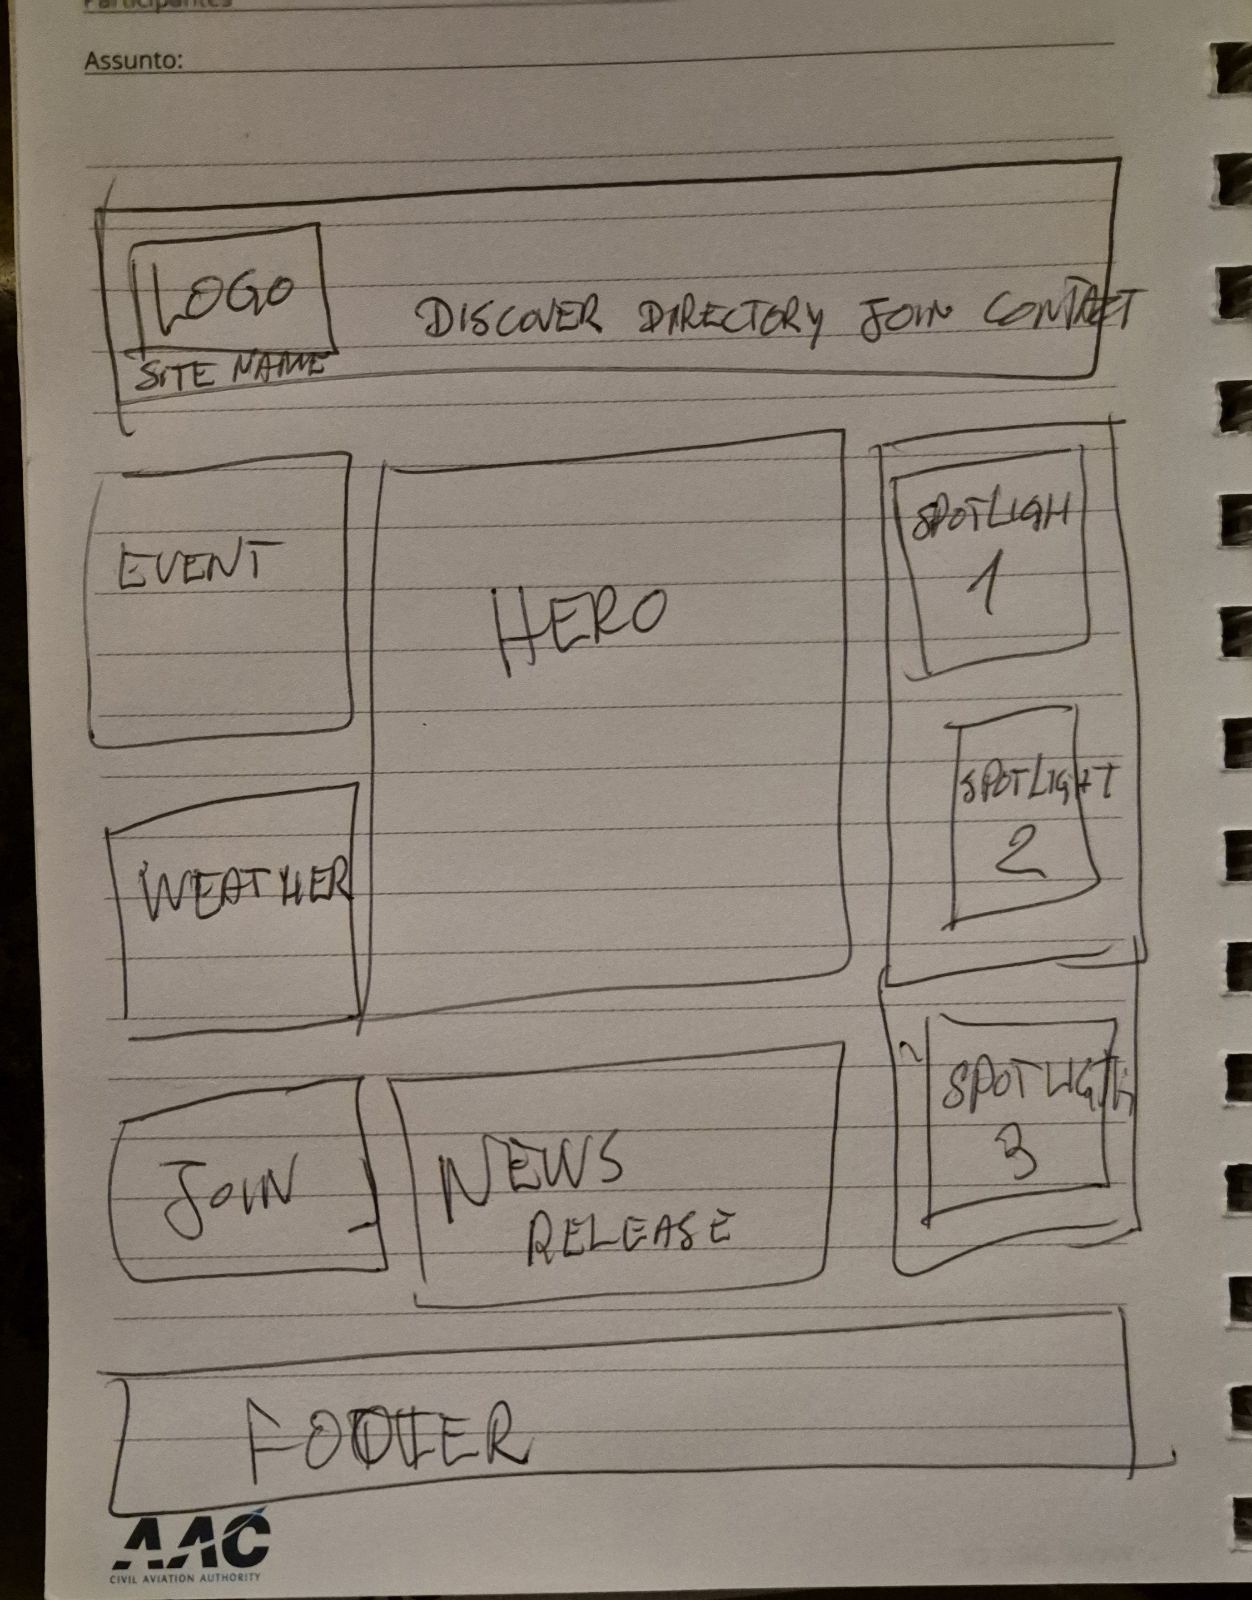 Participantes
Assunto:
LOGO
SITE NAME
DISCOVER DIRECTORY JOIN CONTACT
EVENT
HERO
SPOTLIGH
1
WEATHER
SPOTLIGHT
2
JOIN
NEWS
RELEASE
SPOTLIGH
3
FOOTER
AAC
CIVIL AVIATION AUTHORITY